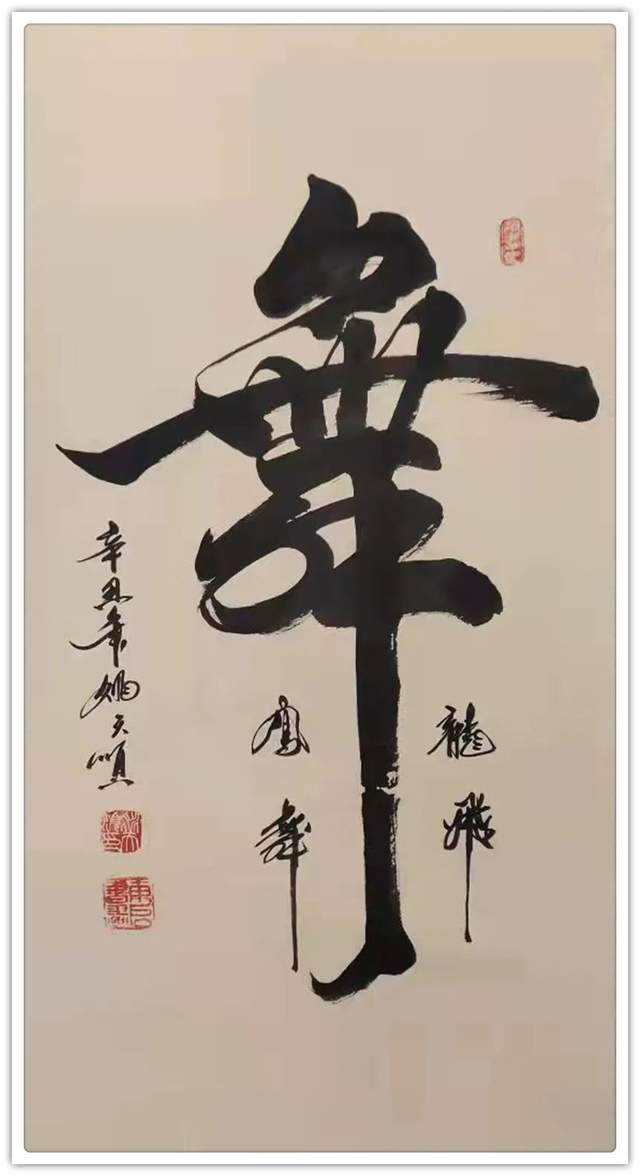 舞
龍飛
鳳舞
辛丑年姚天順